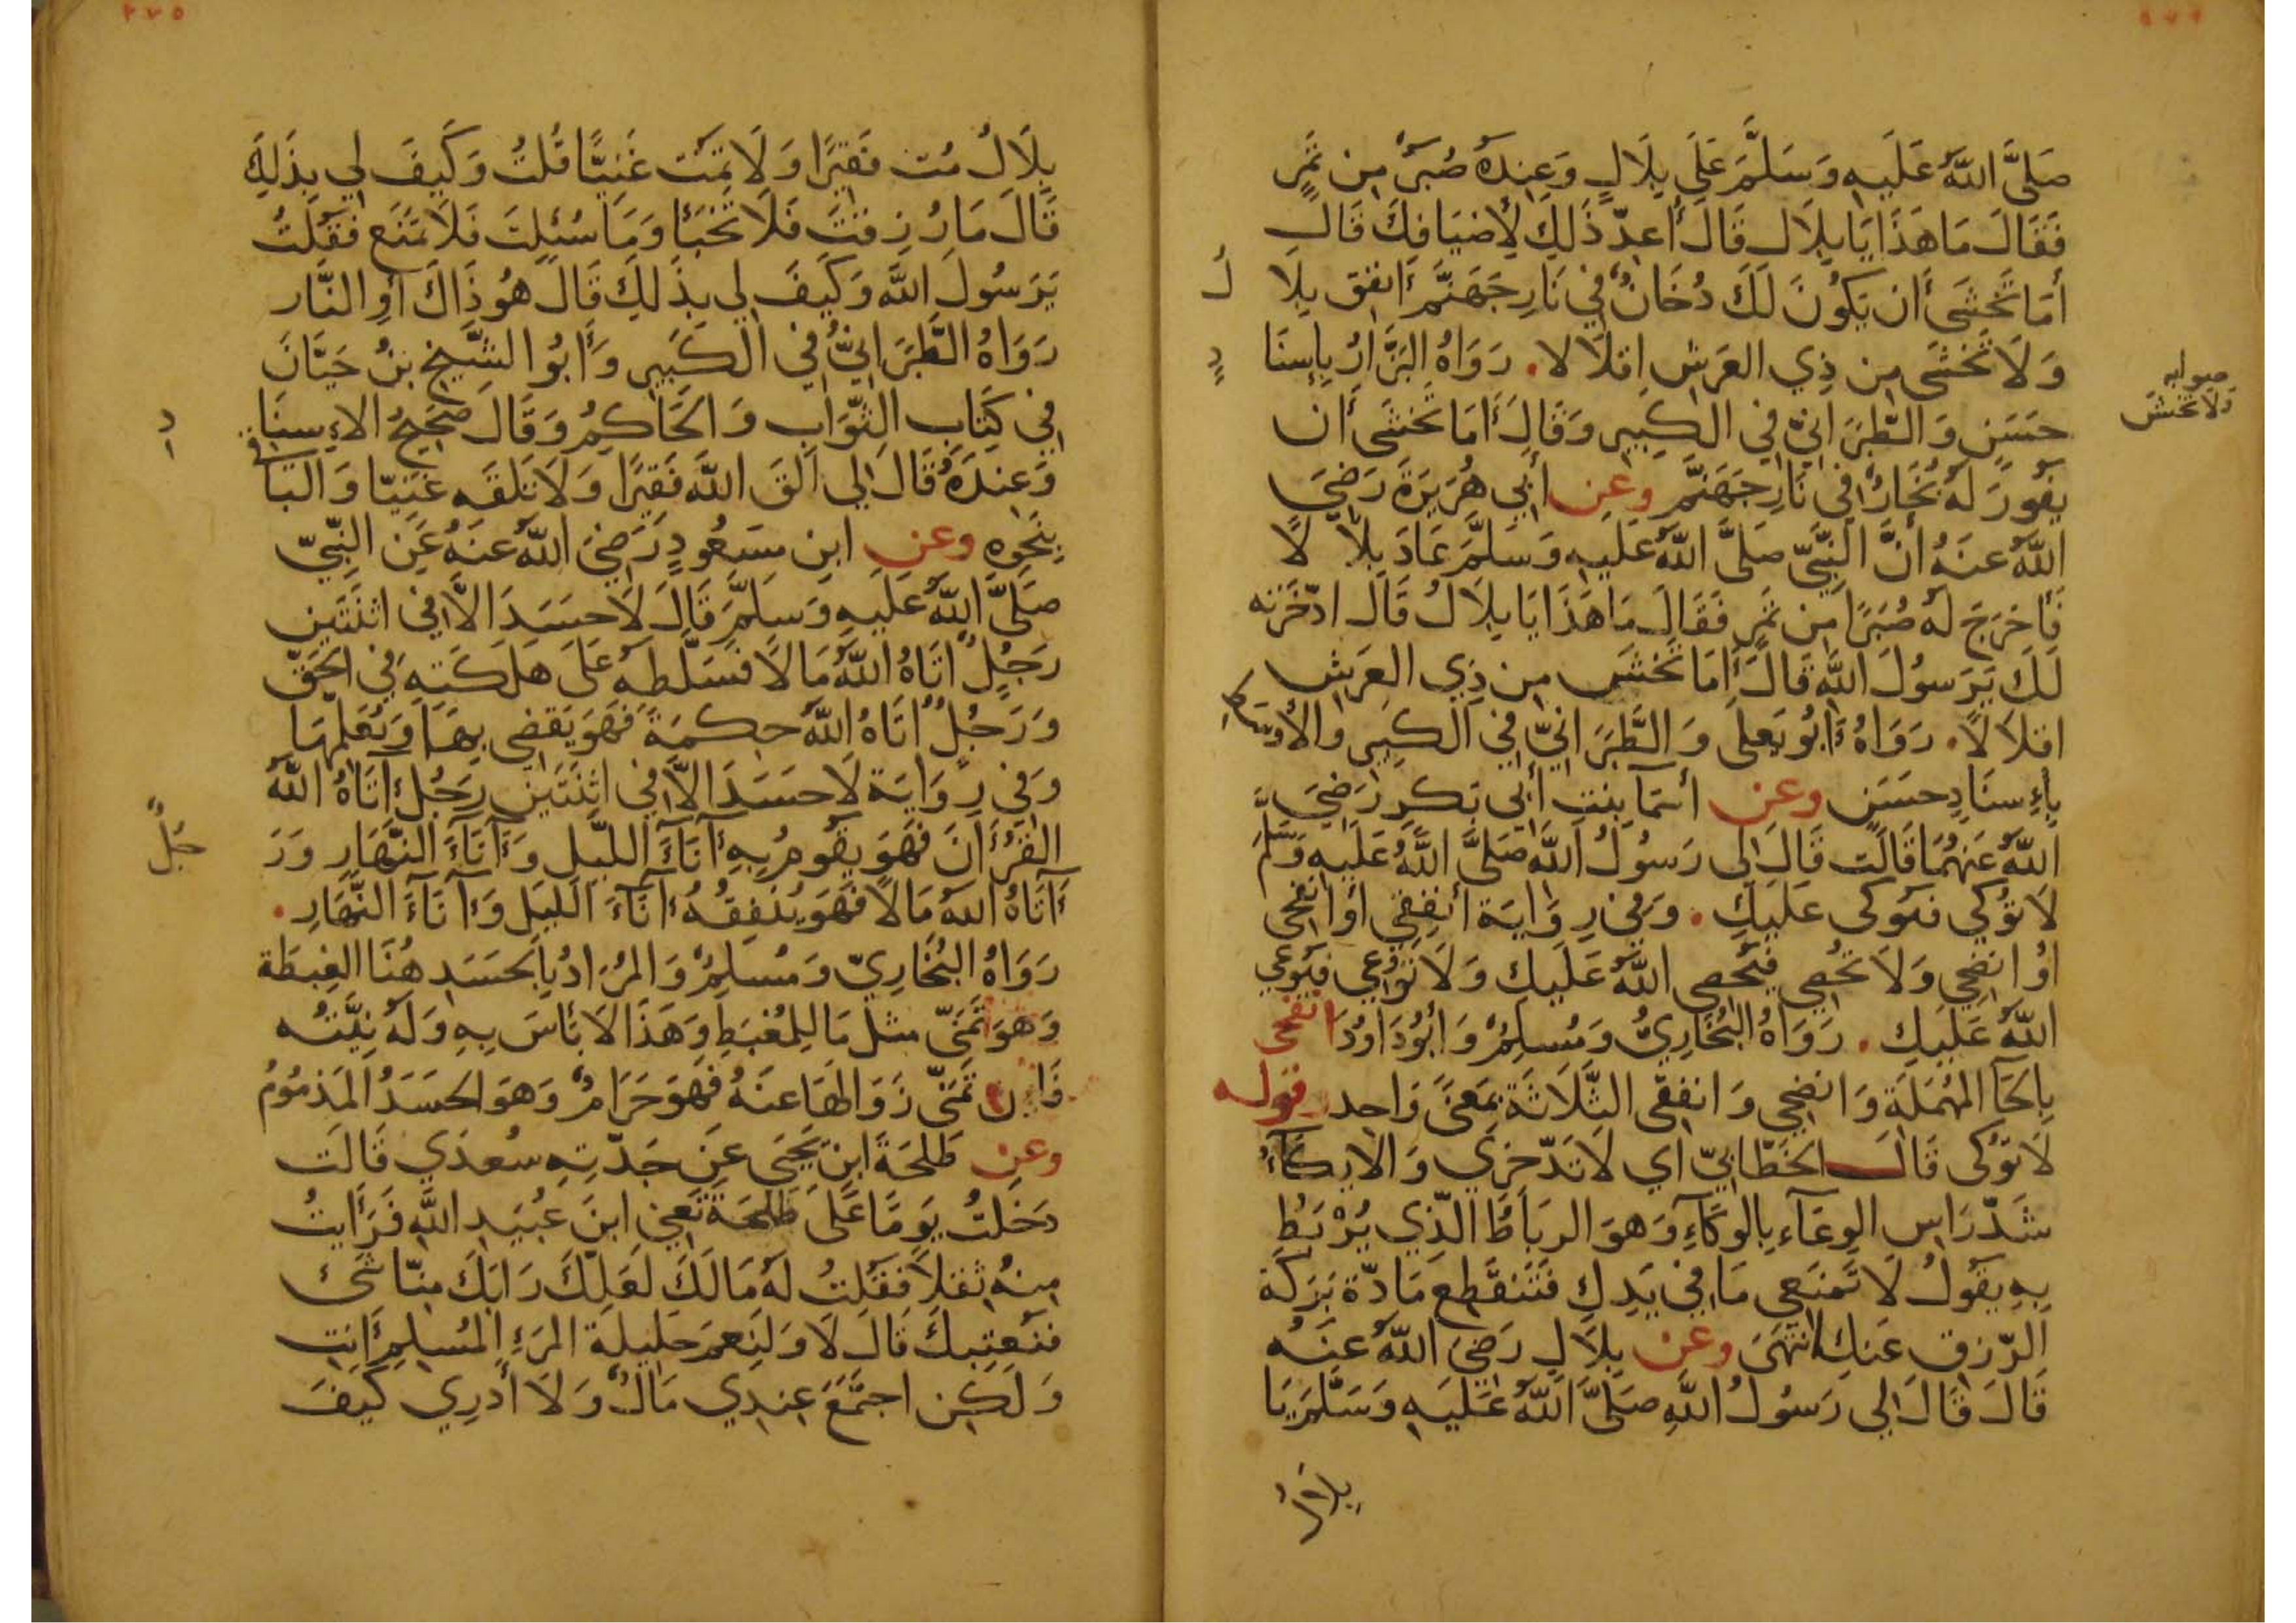 صَلَّى اللّٰهُ عَلَيهِ وَسَلَّمَ عَلَى بِلَالٍ وَعِندَهُ صُبَرٌ مِن تَمَرٍ
فَقَالَ مَا هَذَا يَا بِلَال قَالَ أُعِدّ ذَلِكَ لِأَضيَافِكَ قَالَ
أَمَا تَخشَى أَن يَكُونَ لَكَ دُخَانٌ فِي نَارِ جَهَنَّمَ أَنفِق بِلَا
لُ
وَلَا تَخشَى مِن ذِي العَرشِ إِقلَالا. رَوَاهُ البَزَّارُ بِإِسنَا
دٍ
صوابه
ولا تخش
حَسَنٍ وَالطَّبَرَانِيّ فِي الكَبِيرِ وَقَالَ أَمَا تَخشَى أَن
يَفُورَ لَهُ بُخَارٌ فِي نَارِ جَهَنَّمَ وعن أَبِي هُرَيرَةَ رَضِيَ
اللّٰهُ عَنهُ أَنَّ النَّبِيّ صَلَّى اللّٰهُ عَلَيهِ وَسَلَّمَ عَادَ بِلَا لًا
فَأَخرَجَ لَهُ صُبَرًا مِن تَمَرٍ فَقَالَ مَا هَذَا يَا بِلَالُ قَالَ ادّخَرتُه
لَكَ يَرَسُولَ اللّٰهِ قَالَ أَمَا تَخشَى مِن ذِي العَرشِ
اقلَالًا. رَوَاهُ أَبُو يَعلَى وَالطَّبَرَانِيّ فِي الكَبِيرِ وَالأَوسَطِ
بِإِسنَادٍ حَسَنٍ وعن أَسمَا بِنتِ أَبِي بَكرٍ رَضِيَ
اللّٰهُ عَنهُمَا قَالَت قَالَ لِي رَسُولُ اللّٰهِ صَلَّى اللّٰهُ عَلَيهِ وَسَلَّمَ
لَا تُوكِي فَيُوكَى عَلَيكِ. وَفِي رِوَايَة أَنفِقِي أَو انفَحِي
أَوُ انضِحِي وَلَا تُحصِي فَيُحصِي اللّٰهُ عَلَيكِ وَلَا تُوعِي فَيُوعِي
اللّٰهُ عَلَيكِ. رَوَاهُ البُخَارِيُّ وَمُسلِمٌ وَأَبُو دَاوُدَ انفحي
بِالحَا المُهمَلَةِ وَانضِحِي وَانفِقِي الثَّلَاثَة بِمَعنًى وَاحِد قوله
لَا تُوكِي قَالَ الخَطَّابِيّ أي لَا تَدّخِرِي وَالايكَآءُ
شَدّ رَاسِ الوِعَآءِ بِالوِكَآءِ وَهوَ الرِبَاطُ الّذِي يُرْبَطُ
بِهِ يَقُولُ لَا تَمنَعِي مَا فِي يَدِكِ فَتَنقَطِعَ مَادّة بَرَكَة
الرّزقِ عَنكِ انتَهَى وعن بِلَالٍ رَضِيَ اللّٰهُ عَنهُ
قَالَ قَالَ لِي رَسُولُ اللّٰهِ صَلَّى اللّٰهُ عَلَيهِ وَسَلَّمَ يَا
بِلَالُ
٢٧٥
بِلَالُ مُت فَقِيرًا وَلَا تَمُت غَنِيًّا قُلتُ وَكَيفَ لِي بِذَلِكَ
قَالَ مَا رُزِقتَ فَلَا تَخبَأ وَمَا سُئِلتَ فَلَا تَمنَع فَقُلتُ
يَرَسُولَ اللّٰهِ وَكَيفَ لِي بِذَلِكَ قَالَ هُو ذَاكَ أَوِ النَّار
رَوَاهُ الطَّبَرَانِيُّ فِي الكَبِيرِ وَأَبُو الشَّيخِ بنُ حَيَّانَ
فِي كِتَابِ الثَّوَابِ وَالحَاكِمُ وَقَالَ صَحِيحُ الإِسنَا
دِ
وَعِندَهُ قَالَ لِي القَ اللّٰهَ فَقِيرًا وَلَا تَلقَه غَنِيّا وَالبَاقِي
بِنَحوِهِ وعن ابنِ مَسعُودٍ رَضِيَ اللّٰهُ عَنهُ عَنِ النَّبِيّ
صَلَّى اللّٰهُ عَلَيهِ وَسَلَّمَ قَالَ لَا حَسَدَ الَّا فِي اثنَتَينِ
رَجُلٌ اتَاهُ اللّٰهُ مَالًا فَسَلَّطَهُ عَلَى هَلَكَتِهِ فِي الحَقّ
وَرَجُلٌ اتَاهُ اللّٰهُ حِكمَةً فَهوَ يَقضِي بِهَا وَيُعَلِّمُهَا
وَفِي رِوَايَة لَا حَسَدَ الَّا فِي اثنَتَينِ رَجُلٌ آتَاهُ اللّٰهُ
القُرءَانَ فَهوَ يَقُومُ بِهِ آنَآءَ اللَّيلِ وَآنَآءَ النَّهَارِ وَرَ
جُلٌ
آتَاهُ اللّٰهُ مَالًا فَهوَ يُنفِقُهُ آنَآءَ اللَّيلِ وَآنَآءَ النَّهَارِ.
رَوَاهُ البُخَارِيّ وَمُسلِمٌ وَالمُرَادُ بِالحَسَدِ هُنَا الغِبطَة
وَهوَ تَمَنّي مثلَ مَا لِلمُغبَطِ وَهَذَا لَا بَأسَ بِهِ وَلَهُ نِيَّتُه
فَإِن تَمَنّى زَوَالهَا عَنهُ فَهوَ حَرَامٌ وَهوَ الحَسَدُ المَذمُومُ
وعن طَلحَةَ ابنِ يَحيَى عَن جَدّتِهِ سُعدَي قَالَت
دَخَلتُ يَومًا عَلَى طَلحَةَ تَعنِي ابنَ عُبَيدِ اللّٰهِ فَرَأَيتُ
مِنهُ ثِقَلًا فَقُلتُ لَهُ مَا لَكَ لَعَلّكَ رَابَكَ مِنّا شَىء
فَنُعتِبَكَ قَالَ لَا وَلَنِعمَ حَلِيلَة المَرءِ المُسلِمِ أَنتِ
وَلَكِن اجتَمَعَ عِندِي مَالٌ وَلَا أَدرِي كَيفَ